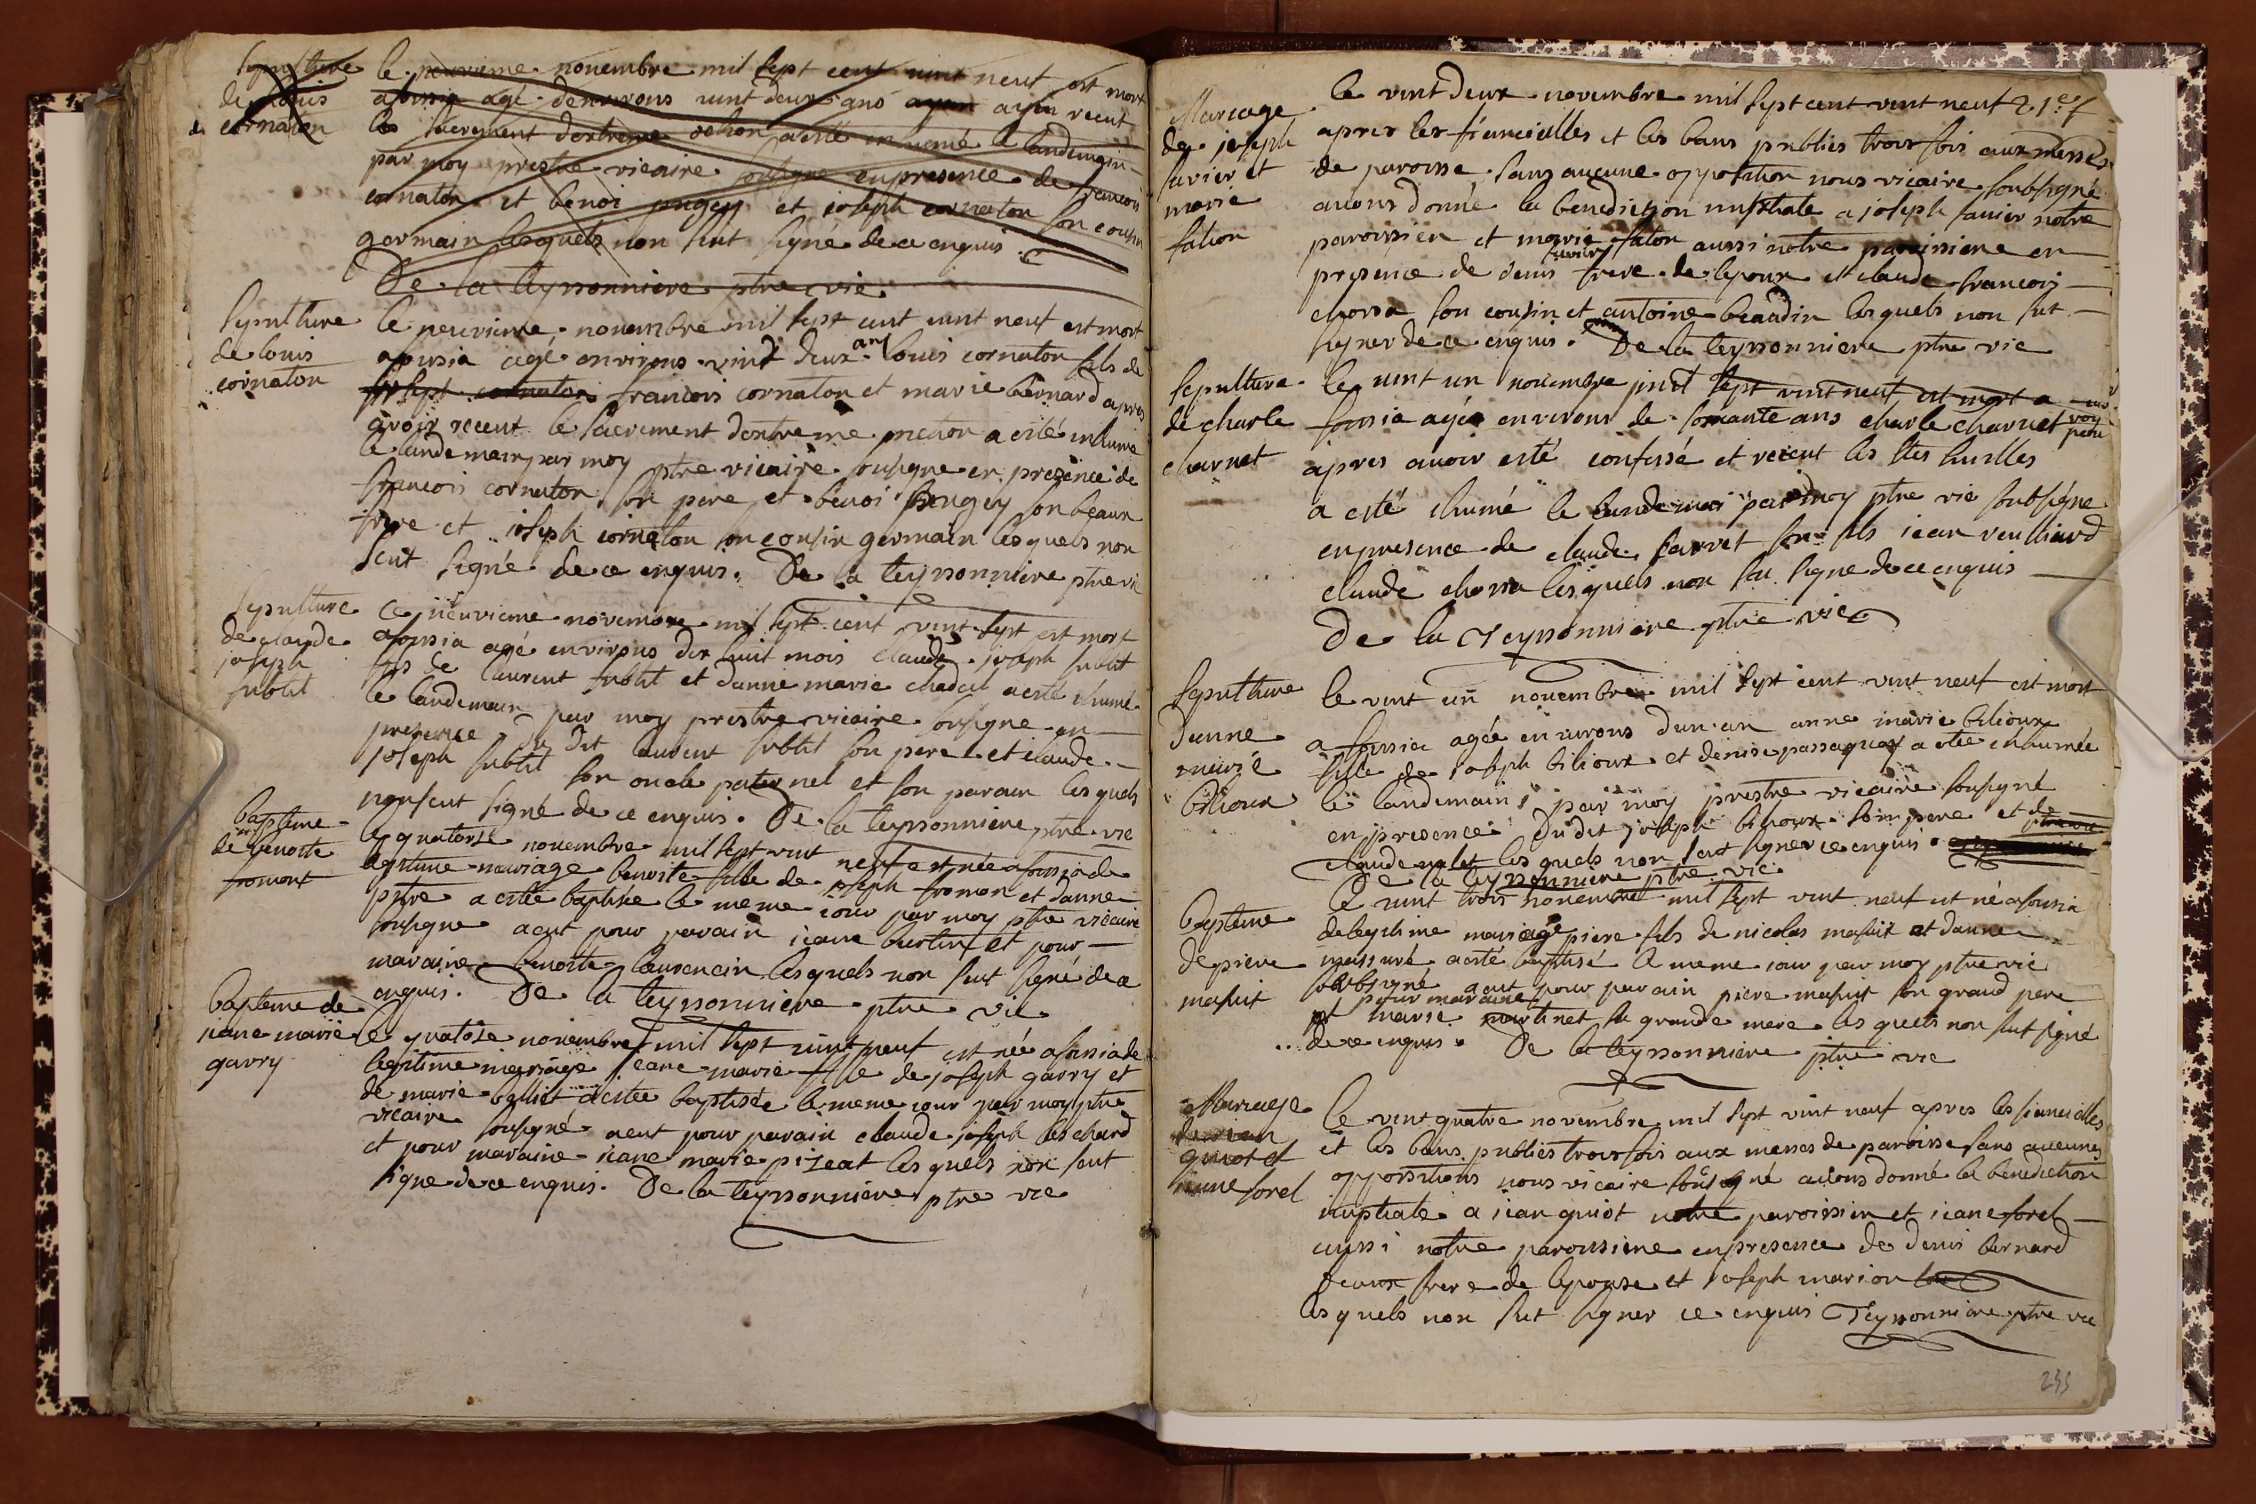 Sepulture
de louis
cornaton
le neuvieme novembre mil sept cent vint neuf est mort
a foissia agé denvirons vint deux ans ayan receut
les sacrement dextreme a esté le landemain
par moy prestre vicaire soussigné en presence de francois
cornaton et benoi pugey et joseph cornaton son cousin
germain lesquels non seut signé de ce enquis
De la teyssonniere ptre vic
Sepulture
de louis
cornaton
le neuvieme novembre mil sept cent vint neuf est mort
a foissia agé environs vint deux ans louis cornaton fils de
joseph cornaton francois cornaton et marie bernard apres
avoir receut le sacrement dextreme onction a esté inhumé
le landemain par moy ptre vicaire sousigné en presence de
francois cornaton son pere et benoi pugey son beaux
frere et joseph cornaton son cousin germain lesquels non
seut signé de ce enquis. De la teyssonniere ptre vic
Sepulture
de claude
joseph
subtil
Ce neuvieme novembre mil sept cent vint sept est mort
a foissia agé environs dix huit mois claude joseph subtil
fils de laurent subtil et danne marie a esté ihumé
le landemain par moy prestre vicaire sousigné en
presence du dit laurent subtil son pere et claude
joseph subtil son oncle paternel et son parain lesquels
nonseut signé de ce enquis. De la teyssonniere ptre vic
bapteme
de benoite
fromont
le quatorse novembre mil sept vint neuf est née a foissia de
legitime mariage benoite fille de joseph fromon et danne
pitre a estée baptisée le meme iour par moy ptre vicaire
sousigné a eut pour parain jean et pour
maraine benoite laurencin lesquels non seut signé de ce
enquis. De la teyssonniere ptre vic
bapteme de
jeane marie
garry
le quatorse novembre mil sept vint neuf est née a foissia de
legitime mariage jeane marie fille de joseph garry et
de marie balliet a estée baptisée le meme iour par moy ptre
vicaire sousigné a eut pour parain claude joseph
et pour maraine jeane marie lesquels non seut
signé de ce enquis. De la teyssonniere ptre vic
Mariage
de joseph
favier et
marie
falion
le vint deux novembre mil sept cent vint neuf
apres les fiancialles et les bans publies trois fois aux messes
de paroisse sans aucune opposition nous vicaire soubsigné
avons donné la benediction nuptiale a joseph favier notre
paroissien et marie falion aussi notre paroissiene en
presence de denis favier frere de lepoux et claude francois
chossa son cousin et antoine beaudin lesquels non sut
signer de ce enquis. De la teyssonniere ptre vic
Sepulture
de charle
charnet
le vint un novembre mil sept vint neuf est mort a
foissia agée environs de soixante ans charle charnet
apres avoir esté confessé et receut les stes huilles
a esté ihumé le landemain par moy ptre vic soubsigné
enpresence de claude son fils jean veulliard
claude chossa lesquels non seu signe de ce enquis
De la Teyssonniere ptre vic
Sepulture
danne
marie
bilioux
le vint un novembre mil sept cent vint neuf est mort
a foissia agée environs dun an anne marie bilioux
fille de joseph bilioux et denise a esté ihumée
le landemain par moy prestre vicaire sousigné
en presence du dit joseph bilioux son pere et de
claude lesquels non seut signer ce enquis.
De la teyssonniere ptre vic
bapteme
de piere
mafuit
Ce vint trois novembre mil sept vint neuf est né a foissia
de legitime mariage piere fils de nicolas mafuit et danne
massuré a esté baptisé le meme iour par moy ptre vic
soubsigné a eut pour parain piere mafuit son grand pere
et pour maraine marie martinet sa grande mere lesquels non sut signé
de ce enquis. De la teyssonniere ptre vic
Mariage
de jean
guiot et
jeane forel
le vint quatre novembre mil sept vint neuf apres les fiancialles
et les bans publies trois fois aux messes de paroisse sans aucunes
oppositions nous vicaire sousigné avons donné la benediction
nuptiale a jean guiot notre paroissien et jeane forel
aussi notre paroissiene enpresence de denis bernard
beaux frere de lepouse et joseph marion
lesquels non sut signer ce enquis Teyssonniere ptre vic